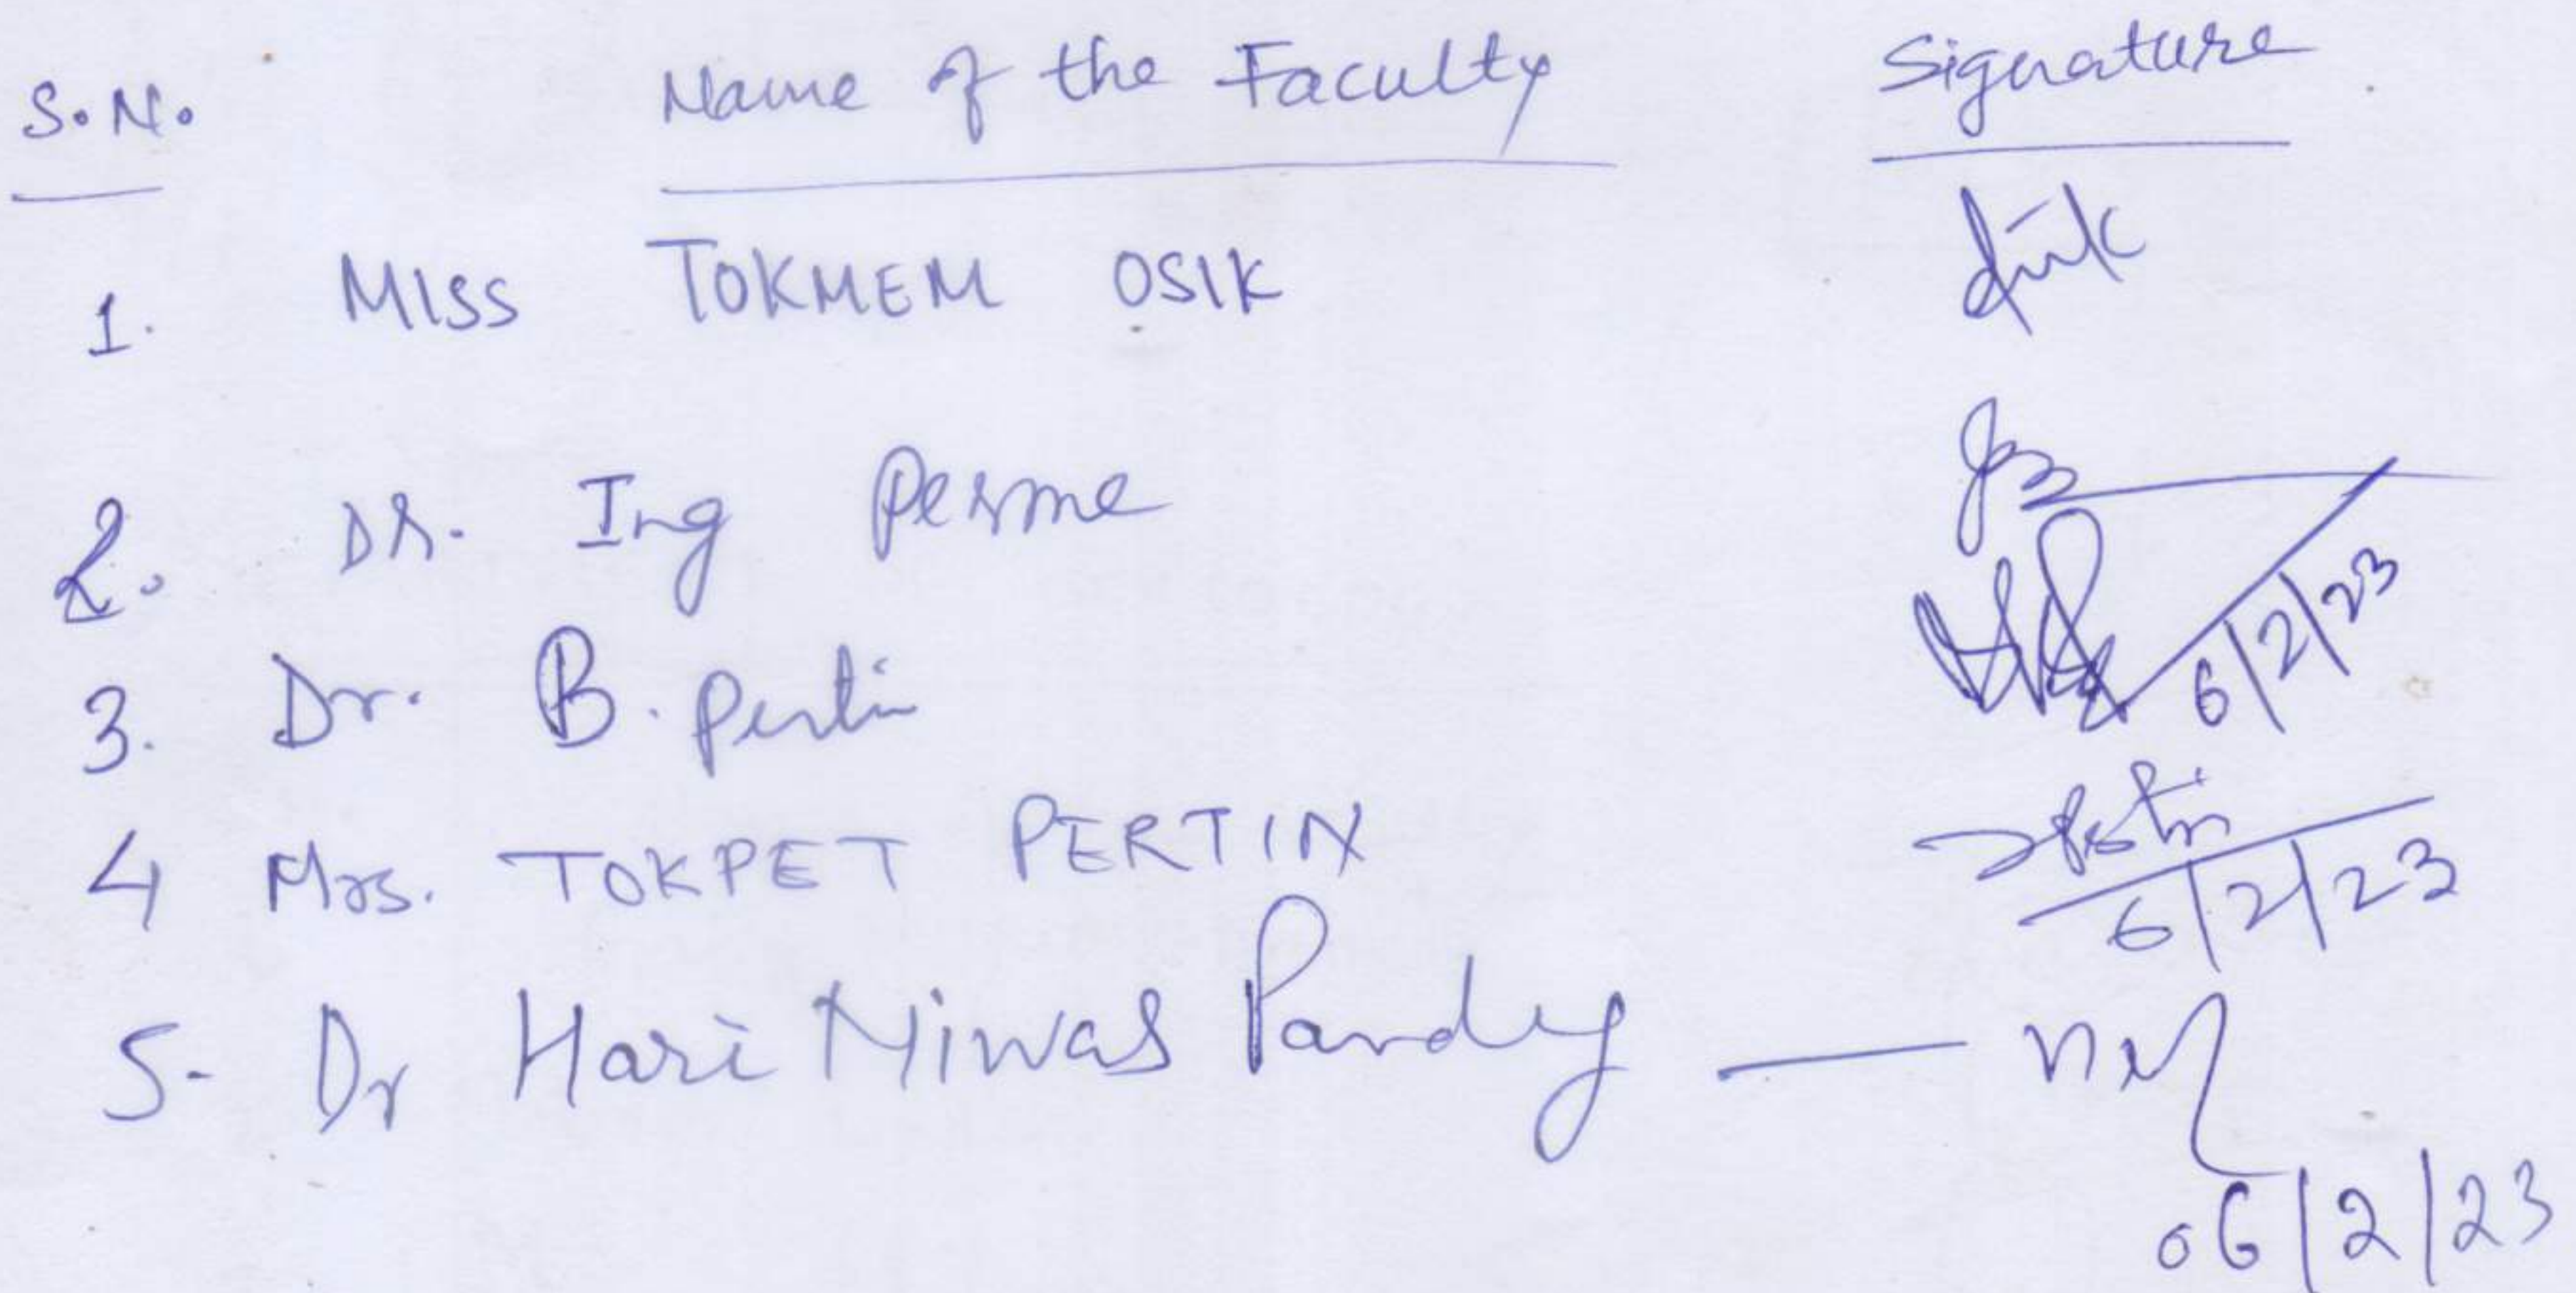 S.N. Name of the Faculty Signature
1. MISS TOKMEM OSIK
2. Dr. Ing Perme
3. Dr. B. Pertin 6/2/23
4 Mrs. TOKPET PERTIN
6/2/23
5- Dr Hari Niwas Pandey —
06/2/23